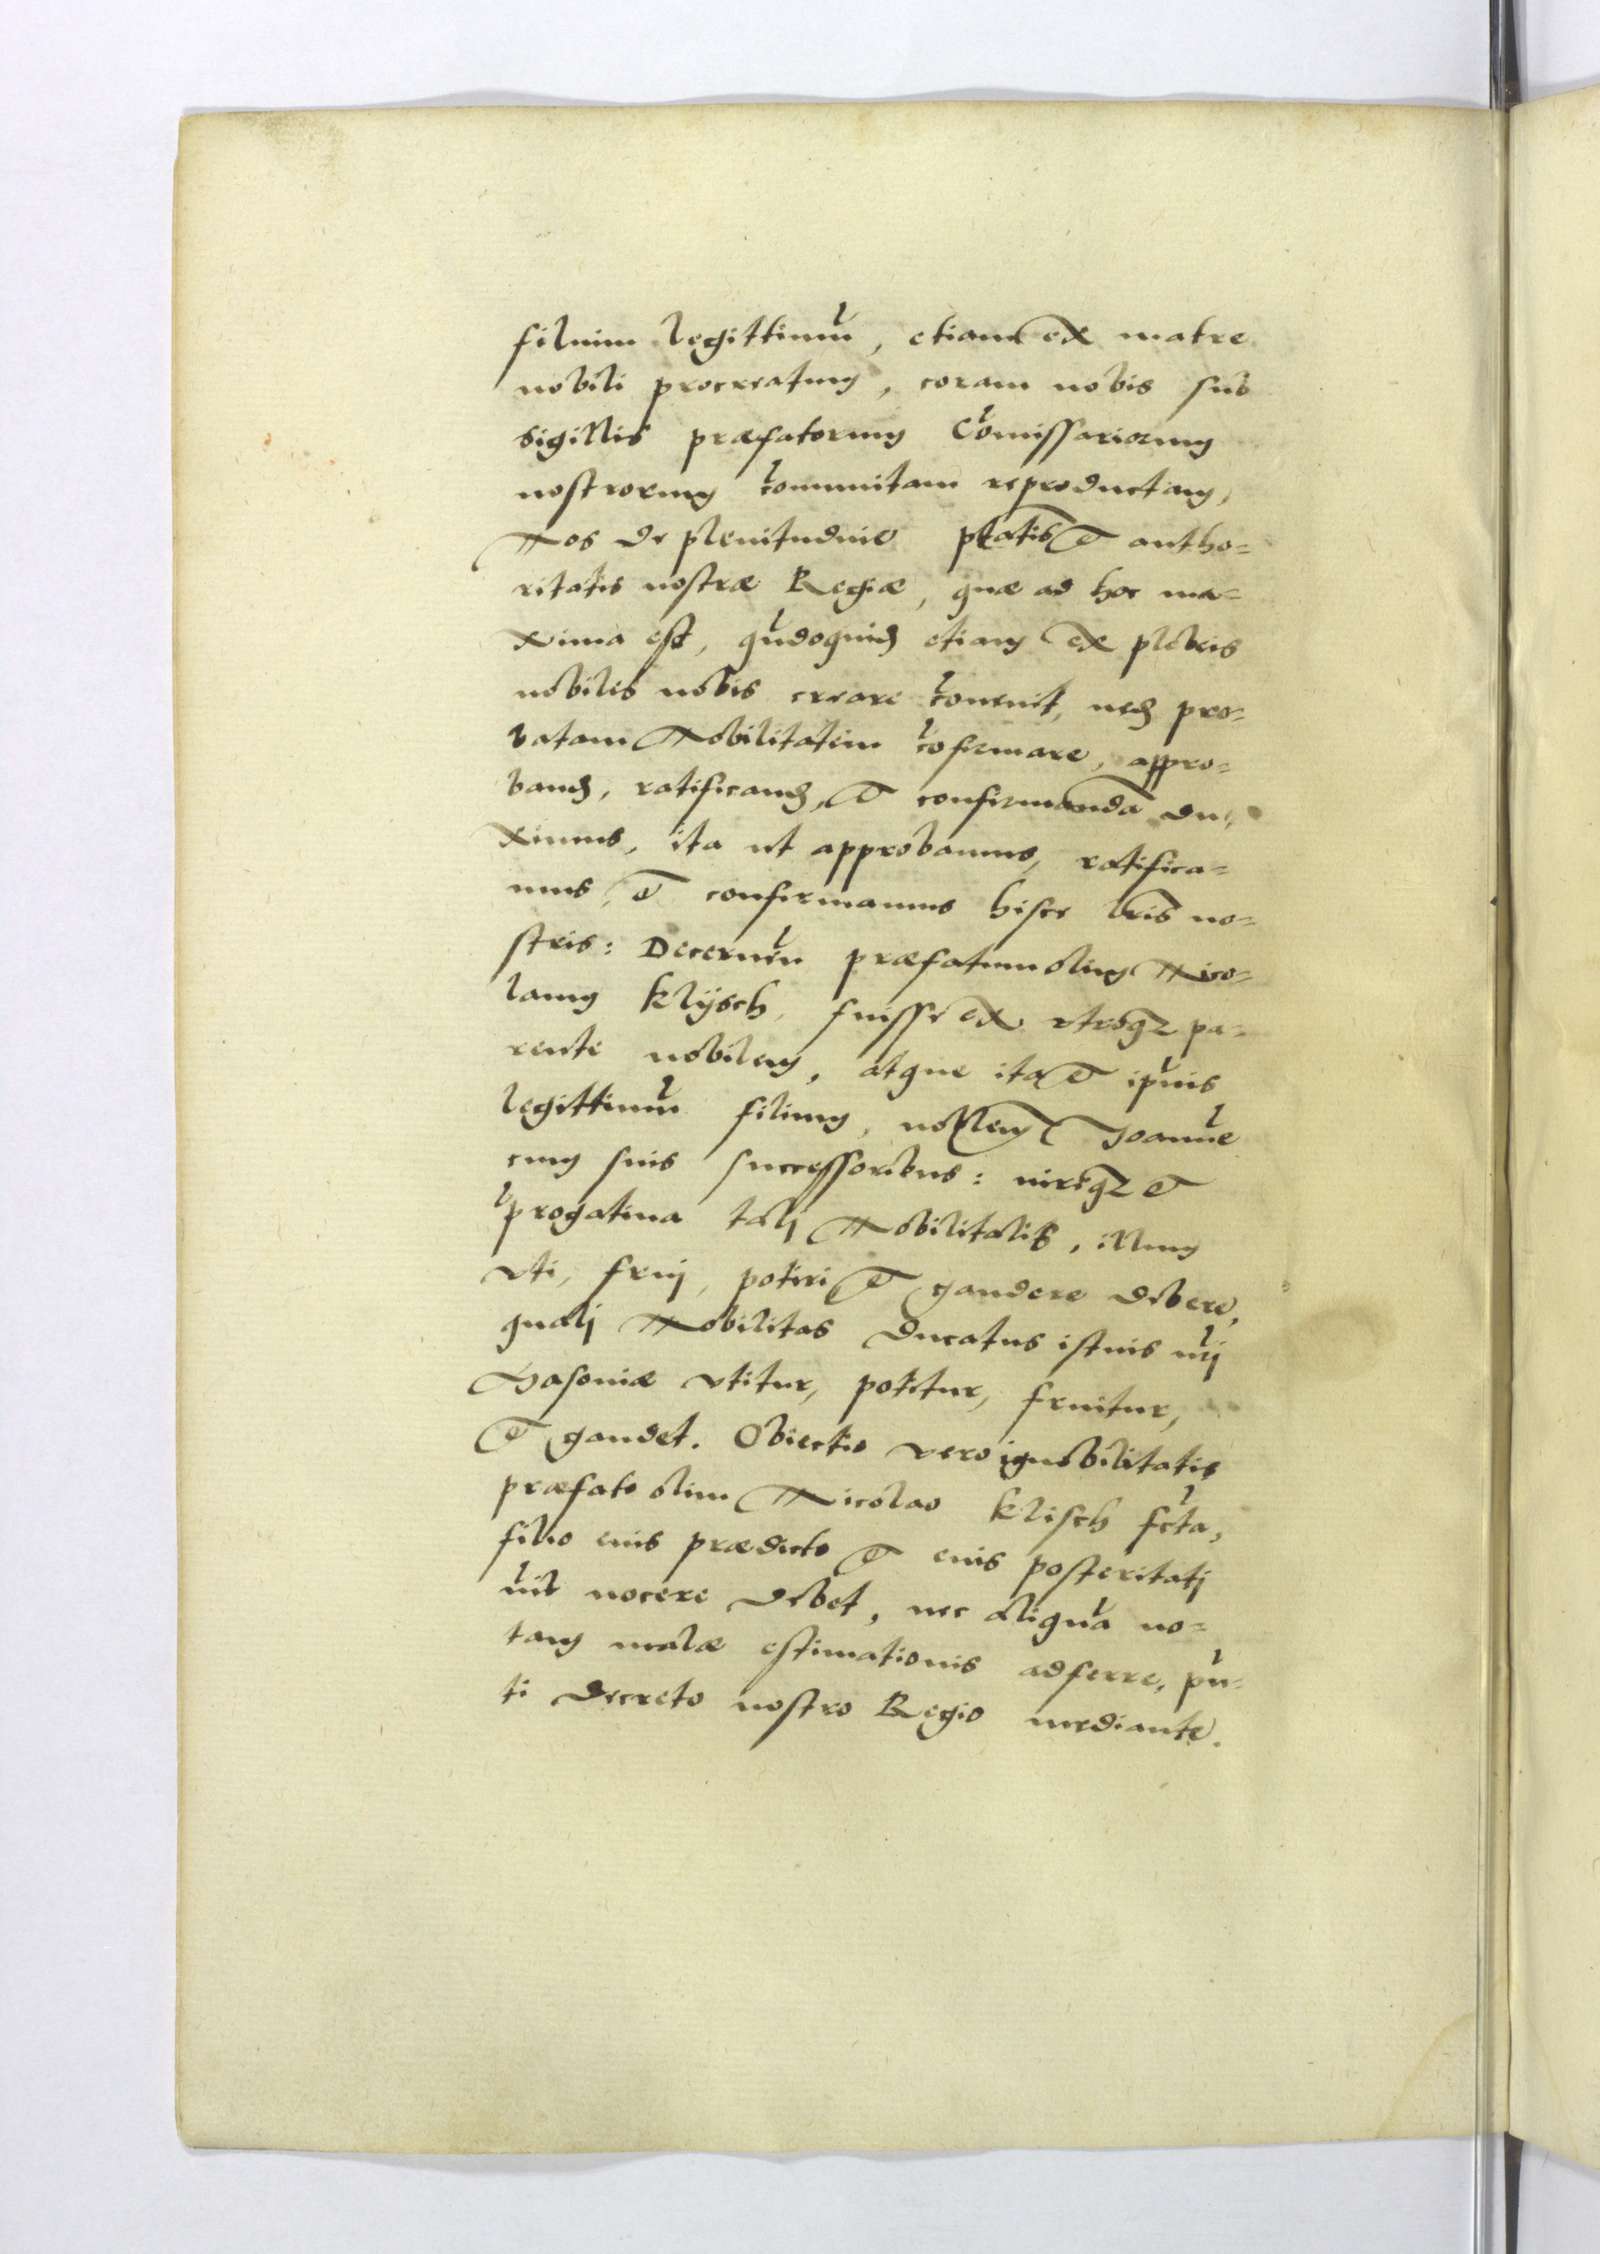 filium legittimũ, etiam ex matre
nobili procreatum, coram nobis sub
sigillis præfatorum Cõmissariorum
nostrorum cõmunitam reproductam,
Nos de plenitudine ptatis et autho=
ritatis nostræ Regiæ, quæ ad hoc ma=
xima est, qũdoquid etiam ex plebeis
nobiles nobis creare cõuenit, ned pro=
batam Nobilitatem cõfirmare, appro=
band, ratificand, et confirmandã du=
ximus, ita ut approbamus, ratifica=
mus, et confirmamus hisce lris no=
stris: Decernẽn præfatum olim Nico=
laum Klÿsch, fuisse ex vtroqz pa=
rente nobilem, atque ita et ipĩus
legittimũ filium, nobilem Joannẽ
cum suis successoribus: iureqz et
prẽrogatiua talj Nobilitatis, illum
vti, fruj, potiri et gaudere debere,
qualj Nobilitas Ducatus istius nrĩ
Masoniæ vtitur, potitur, fruitur,
et gaudet. Obiectio vero ignobilitatis
præfato olim Nicolao Klisch fcta,
filio eius prædicto et eius posteritatj
nil nocere debet, nec aliquã no=
tam malæ estimationis adferre, pñ=
ti decreto nostro Regio mediante.